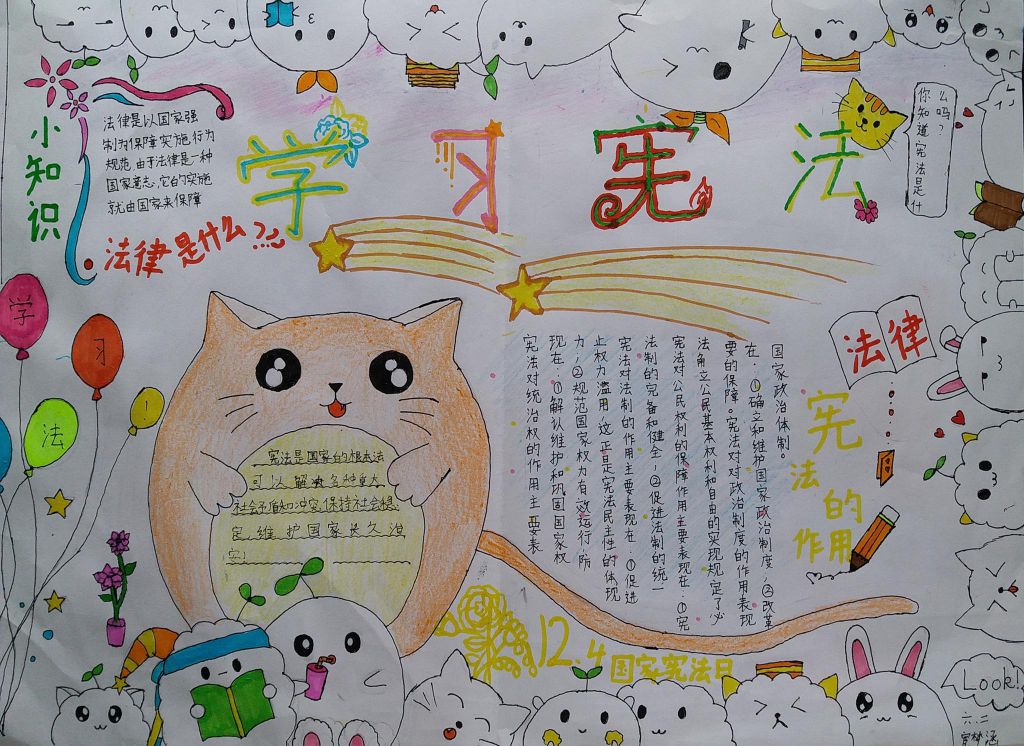 学习宪法
小知识
法律是以国家强
制为保障实施行为
规范,由于法律是一种
国家意志,它的实施
就由国家来保障
法律是什么?
你知道宪法是什
么吗?
学
习
法
宪法是国家的根本法
可以解决各种重大
社会矛盾和冲突,保持社会稳
定,维护国家长久治
安!
宪法对统治权的作用主要表
现在:①解认维护和巩固国家权
力;②规范国家权力有效运行,防
止权力滥用,这正是宪法民主性的体现
宪法对法制的作用主要表现在:①促进
法制的完备和健全;②促进法制的统一
宪法对公民权利的保障作用主要表现在:①宪
法角立公民基本权利和自由的实现规定了必
要的保障。宪法对对政治制度的作用表现
在:①确立和维护国家政治制度;②改革
国家政治体制。
法律
宪法的作用
12.4
国家宪法日
Look!
六.二